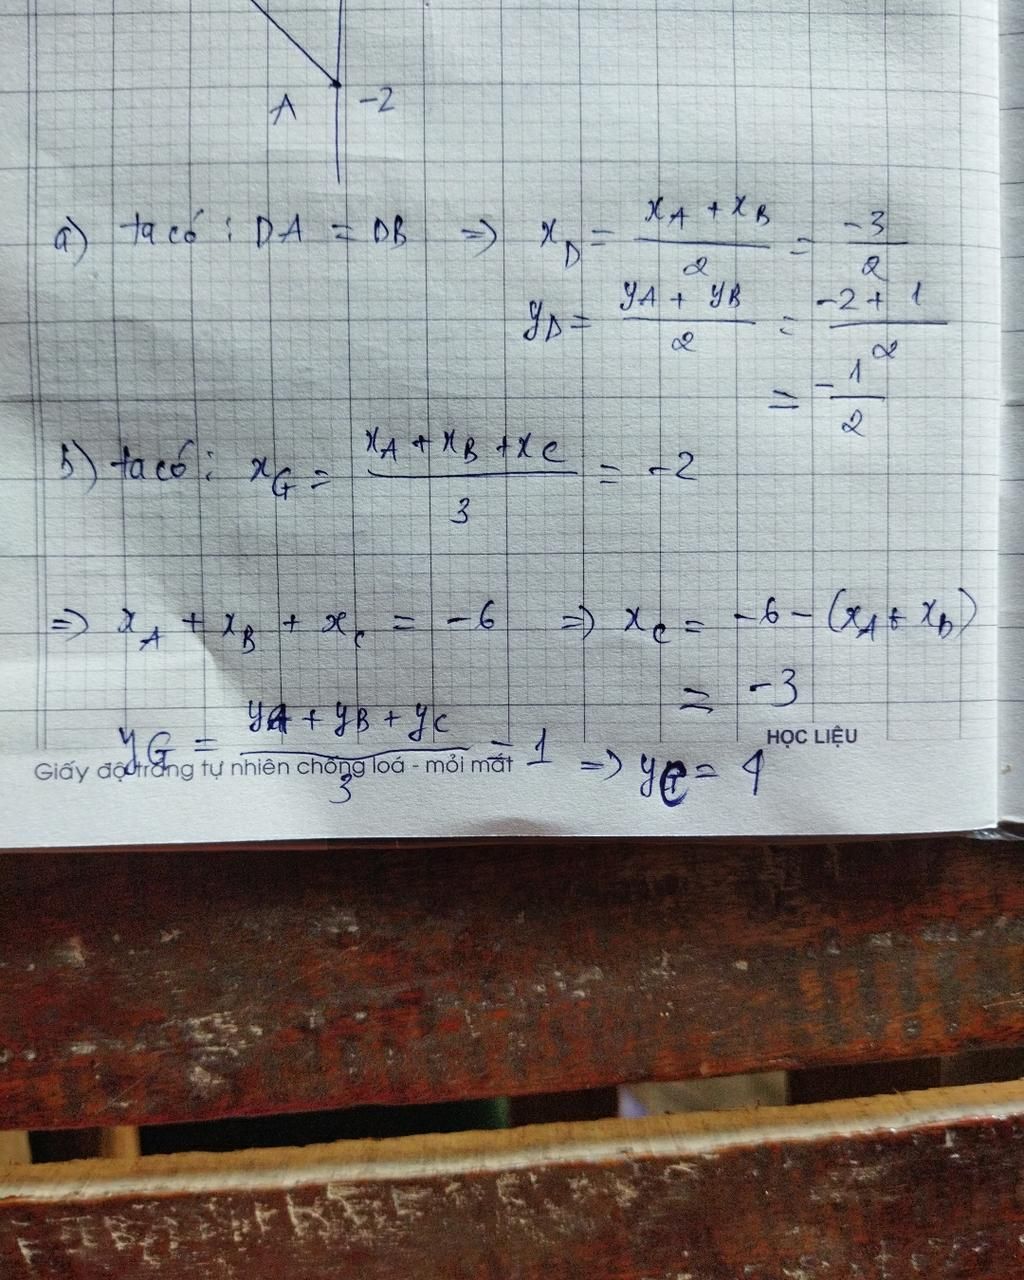 A -2
a) ta có : DA = DB => x_D = (x_A + x_B)/2 = -3/2
y_D = (y_A + y_B)/2 = (-2 + 1)/2
= -1/2
b) ta có : x_G = (x_A + x_B + x_C)/3 = -2
=> x_A + x_B + x_C = -6 => x_C = -6 - (x_A + x_B)
= -3
y_G = (y_A + y_B + y_C)/3 = 1 => y_C = 4
HỌC LIỆU
Giấy độ trắng tự nhiên chống loá - mỏi mắt